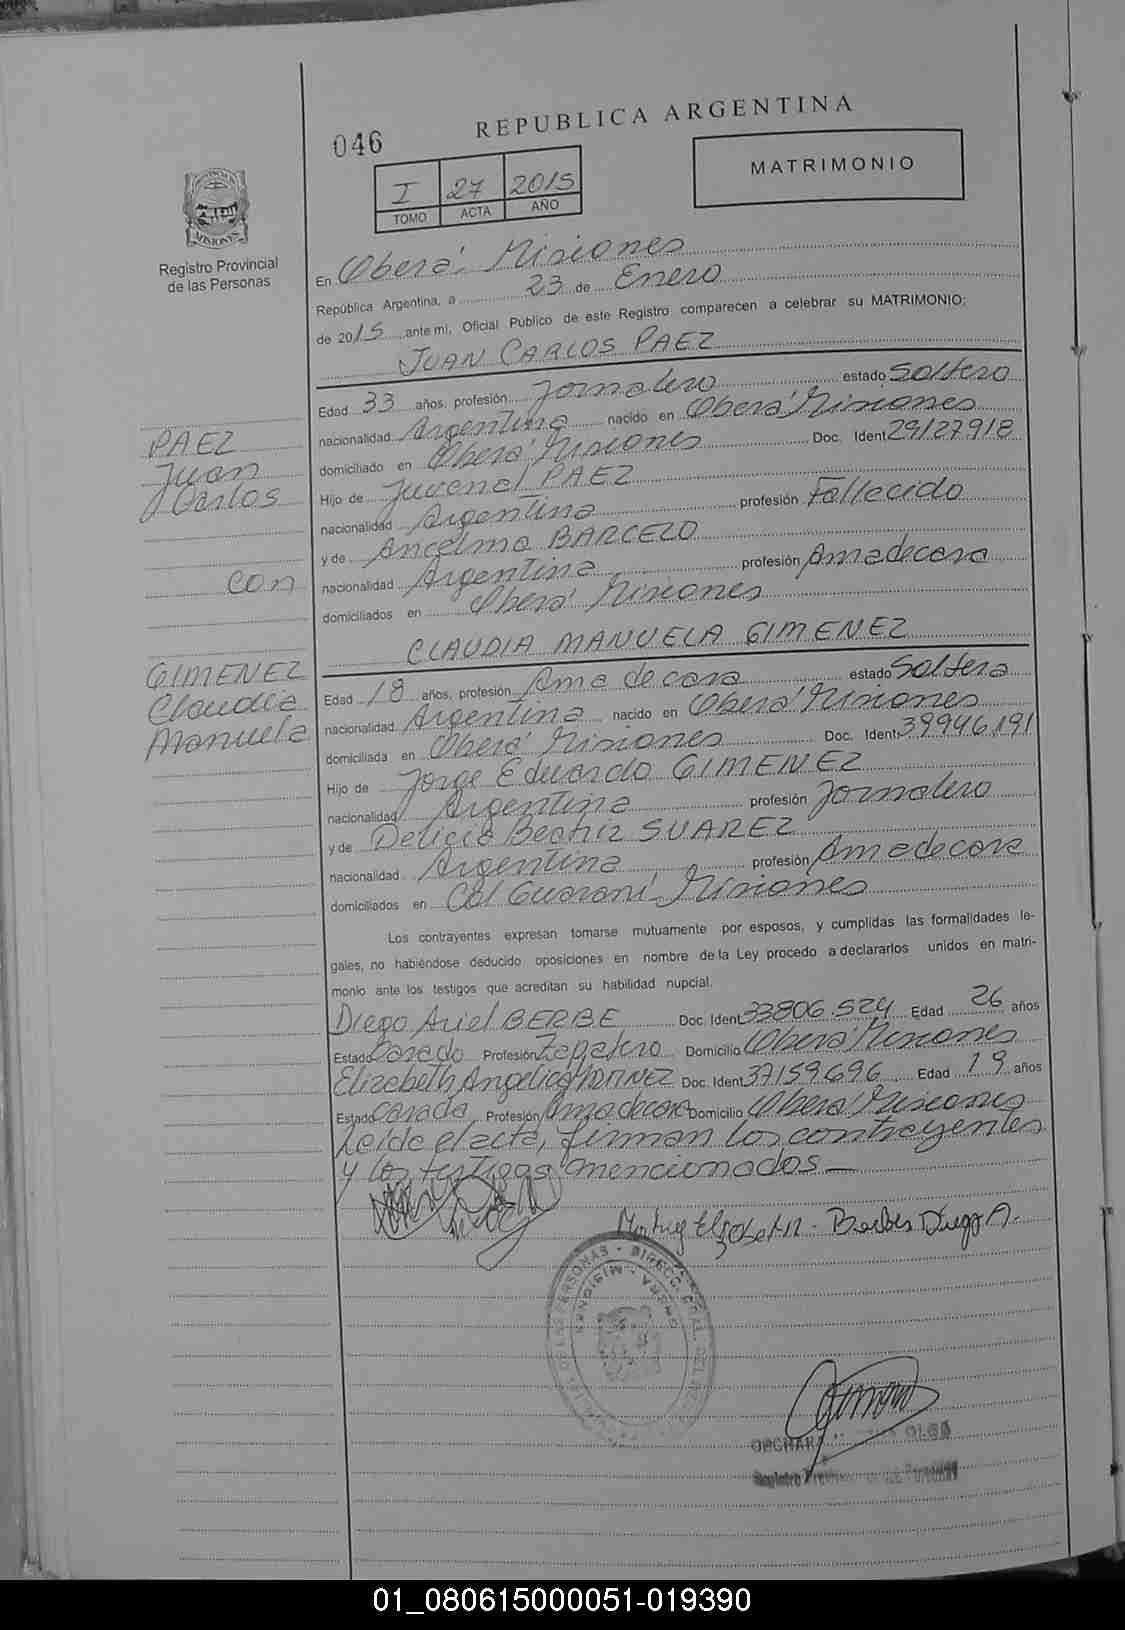 REPUBLICA ARGENTINA
046
I 27 2015
TOMO ACTA AÑO
MATRIMONIO
PROVINCIA
MISIONES
Registro Provincial
de las Personas
En Oberá. Misiones
República Argentina, a 23 de Enero
de 2015 ante mi, Oficial Público de este Registro comparecen a celebrar su MATRIMONIO:
JUAN CARLOS PAEZ
Edad 33 años, profesión Jornalero estado Soltero
nacionalidad Argentina nacido en Oberá Misiones
domiciliado en Oberá Misiones Doc. Ident 29127918
Hijo de Juvenal PAEZ
nacionalidad Argentina profesión Fallecido
y de Ancelma BARCELO
nacionalidad Argentina profesión Amadecasa
domiciliados en Oberá Misiones
PAEZ
Juan
Carlos
con
GIMENEZ
Claudia
Manuela
CLAUDIA MANUELA GIMENEZ
Edad 18 años, profesión Ama de casa estado Soltera
nacionalidad Argentina nacido en Oberá Misiones
domiciliada en Oberá Misiones Doc. Ident 39946191
Hijo de Jorge Eduardo GIMENEZ
nacionalidad Argentina profesión Jornalero
y de Delicia Beatriz SUAREZ
nacionalidad Argentina profesión Amadecasa
domiciliados en Col Guaraní Misiones
Los contrayentes expresan tomarse mutuamente por esposos, y cumplidas las formalidades le-
gales, no habiéndose deducido oposiciones en nombre de la Ley procedo a declararlos unidos en matri-
monio ante los testigos que acreditan su habilidad nupcial.
Diego Ariel BERBE Doc. Ident 33806.524 Edad 26 años
Estado Casado Profesión Zapatero Domicilio Oberá Misiones
Elizabeth Angelica Doc. Ident 37159696 Edad 19 años
Estado Casada Profesión Amadecasa Domicilio Oberá Misiones
Leida el acta, firman los contrayentes
y los testigos mencionados
Diego A.
OLGA
01_080615000051-019390